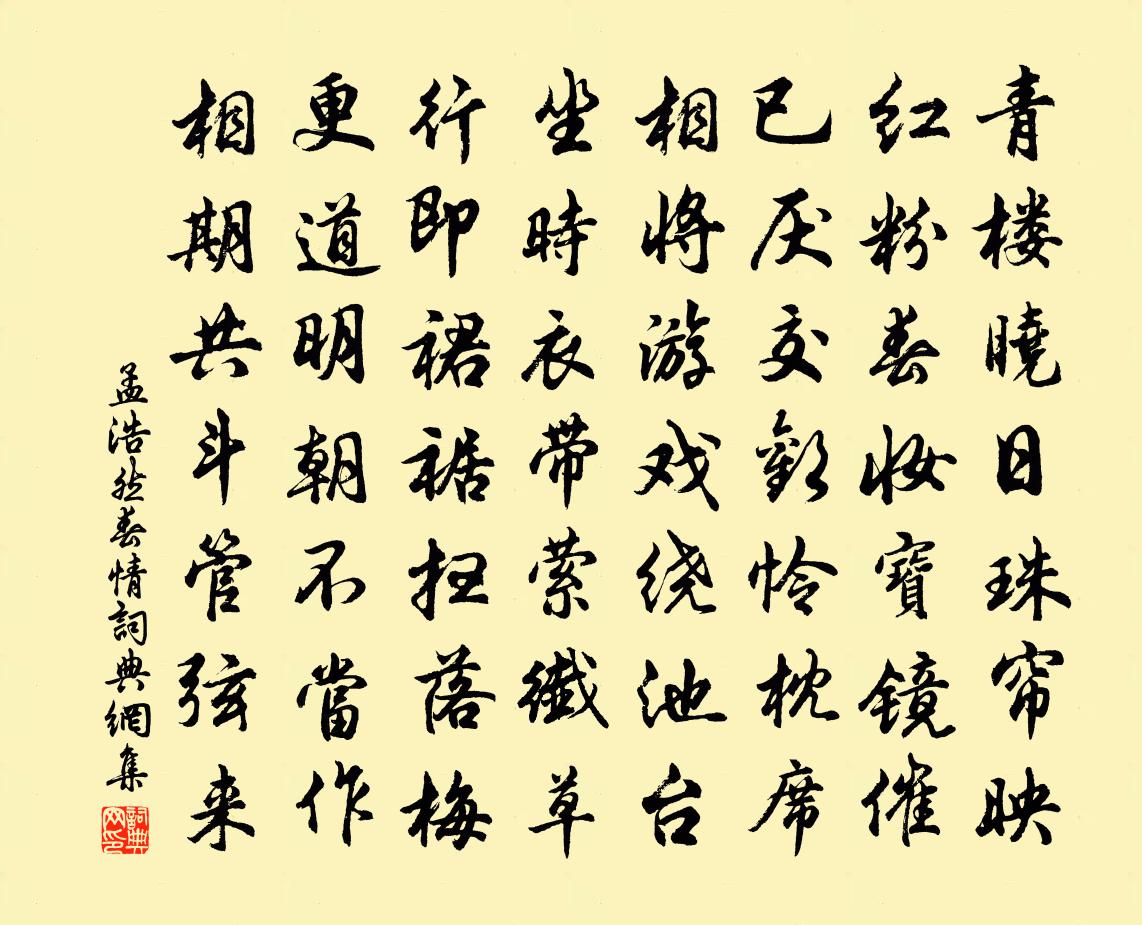 青楼曉日珠帘映
红粉春妆寶镜催
已厌交歡怜枕席
相将游戏绕池台
坐時衣带萦纖草
行即裙裾扫落梅
更道明朝不當作
相期共斗管弦来
孟浩然春情詞典網集
詞典
网印